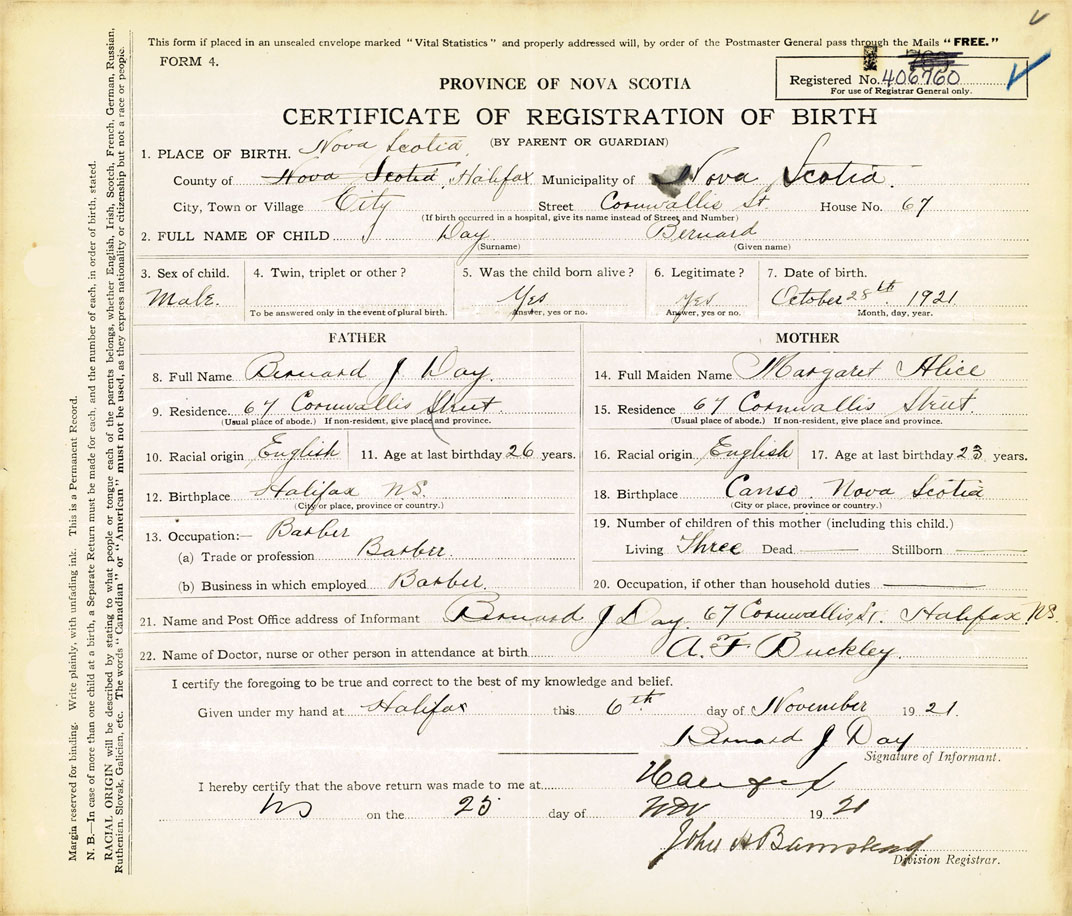 This form if placed in an unsealed envelope marked "Vital Statistics" and properly addressed will, by order of the Postmaster General pass through the Mails "FREE."
FORM 4.
Registered No. 406760
For use of Registrar General only.
PROVINCE OF NOVA SCOTIA
CERTIFICATE OF REGISTRATION OF BIRTH
(BY PARENT OR GUARDIAN)
1. PLACE OF BIRTH. Nova Scotia
County of Nova Scotia Halifax Municipality of Nova Scotia.
City, Town or Village City Street Cornwallis St. House No. 67
(If birth occurred in a hospital, give its name instead of Street and Number)
2. FULL NAME OF CHILD Day Bernard
(Surname) (Given name)
3. Sex of child. 4. Twin, triplet or other? 5. Was the child born alive? 6. Legitimate? 7. Date of birth.
Male. Yes Yes October 28th 1921
To be answered only in the event of plural birth. Answer, yes or no. Answer, yes or no. Month, day, year.
FATHER
8. Full Name Bernard J Day.
9. Residence 67 Cornwallis Street.
(Usual place of abode.) If non-resident, give place and province.
10. Racial origin English 11. Age at last birthday 26 years.
12. Birthplace Halifax NS.
(City or place, province or country.)
13. Occupation:— Barber
(a) Trade or profession Barber.
(b) Business in which employed Barber.
MOTHER
14. Full Maiden Name Margaret Alice
15. Residence 67 Cornwallis Street.
(Usual place of abode.) If non-resident, give place and province.
16. Racial origin English 17. Age at last birthday 23 years.
18. Birthplace Canso. Nova Scotia
(City or place, province or country.)
19. Number of children of this mother (including this child.)
Living Three Dead Stillborn
20. Occupation, if other than household duties
21. Name and Post Office address of Informant Bernard J Day. 67 Cornwallis St. Halifax NS.
22. Name of Doctor, nurse or other person in attendance at birth A. F Buckley.
I certify the foregoing to be true and correct to the best of my knowledge and belief.
Given under my hand at Halifax this 6th day of November 1921.
Bernard J Day
Signature of Informant.
I hereby certify that the above return was made to me at Halifax
NS on the 25 day of Nov 1921
John A Barnstead
Division Registrar.
Margin reserved for binding. Write plainly, with unfading ink. This is a Permanent Record.
N. B.—In case of more than one child at a birth, a Separate Return must be made for each, and the number of each, in order of birth, stated.
RACIAL ORIGIN will be described by stating to what people or tongue each of the parents belongs, whether English, Irish, Scotch, French, German, Russian,
Ruthenian, Slovak, Galician, etc. The words "Canadian" or "American" must not be used, as they express nationality or citizenship but not a race or people.